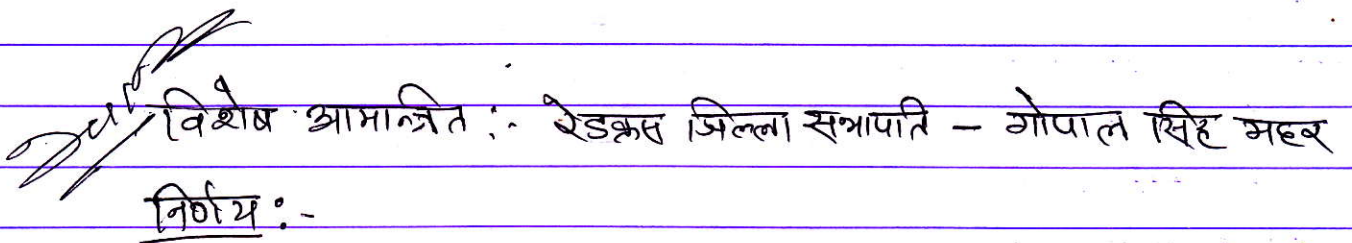 विशेष आमान्त्रित :- रेडक्रस जिल्ला सभापति - गोपाल सिंह महर
निर्णय :-